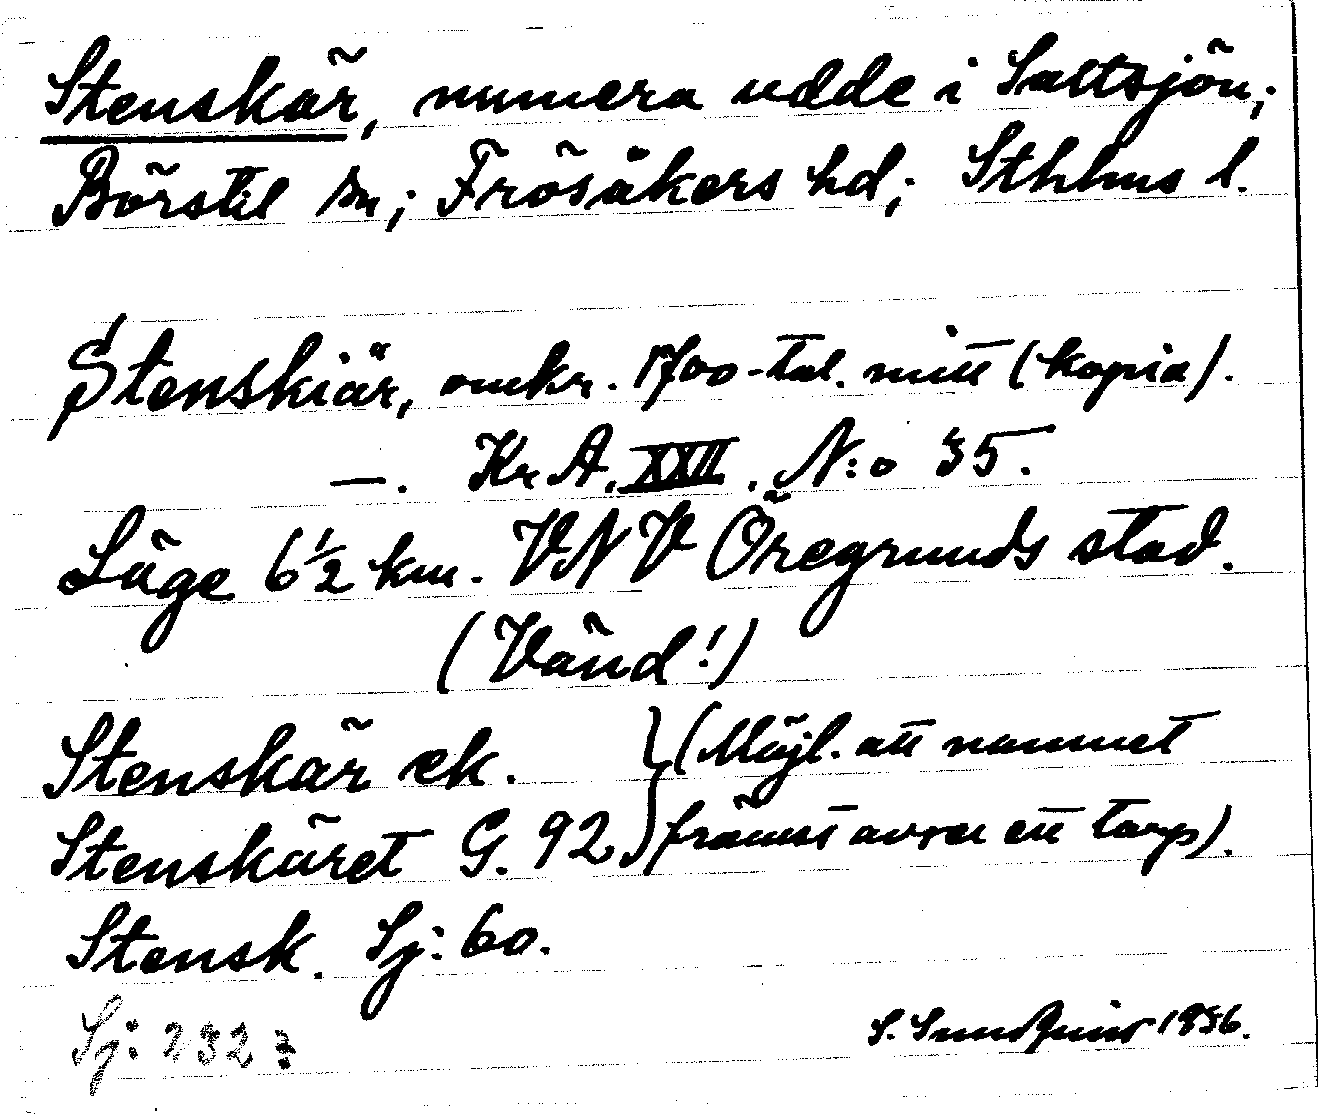 Stenskär, numera udde i Saltsjön;
Börstil sn; Frösåkers hd; Sthlms l.
Stenskiär, omkr. 1700-tal. mitt (kopia).
—. Kr A. XXII. N:o 35.
Läge 6½ km. VNV Öregrunds stad.
(Vänd!)
Stenskär ek. } (Möjl. att namnet
Stenskäret G. 92 } främst avser ett torp).
Stensk. Sj: 60.
Sj: 232
S. Sundquist 1936.